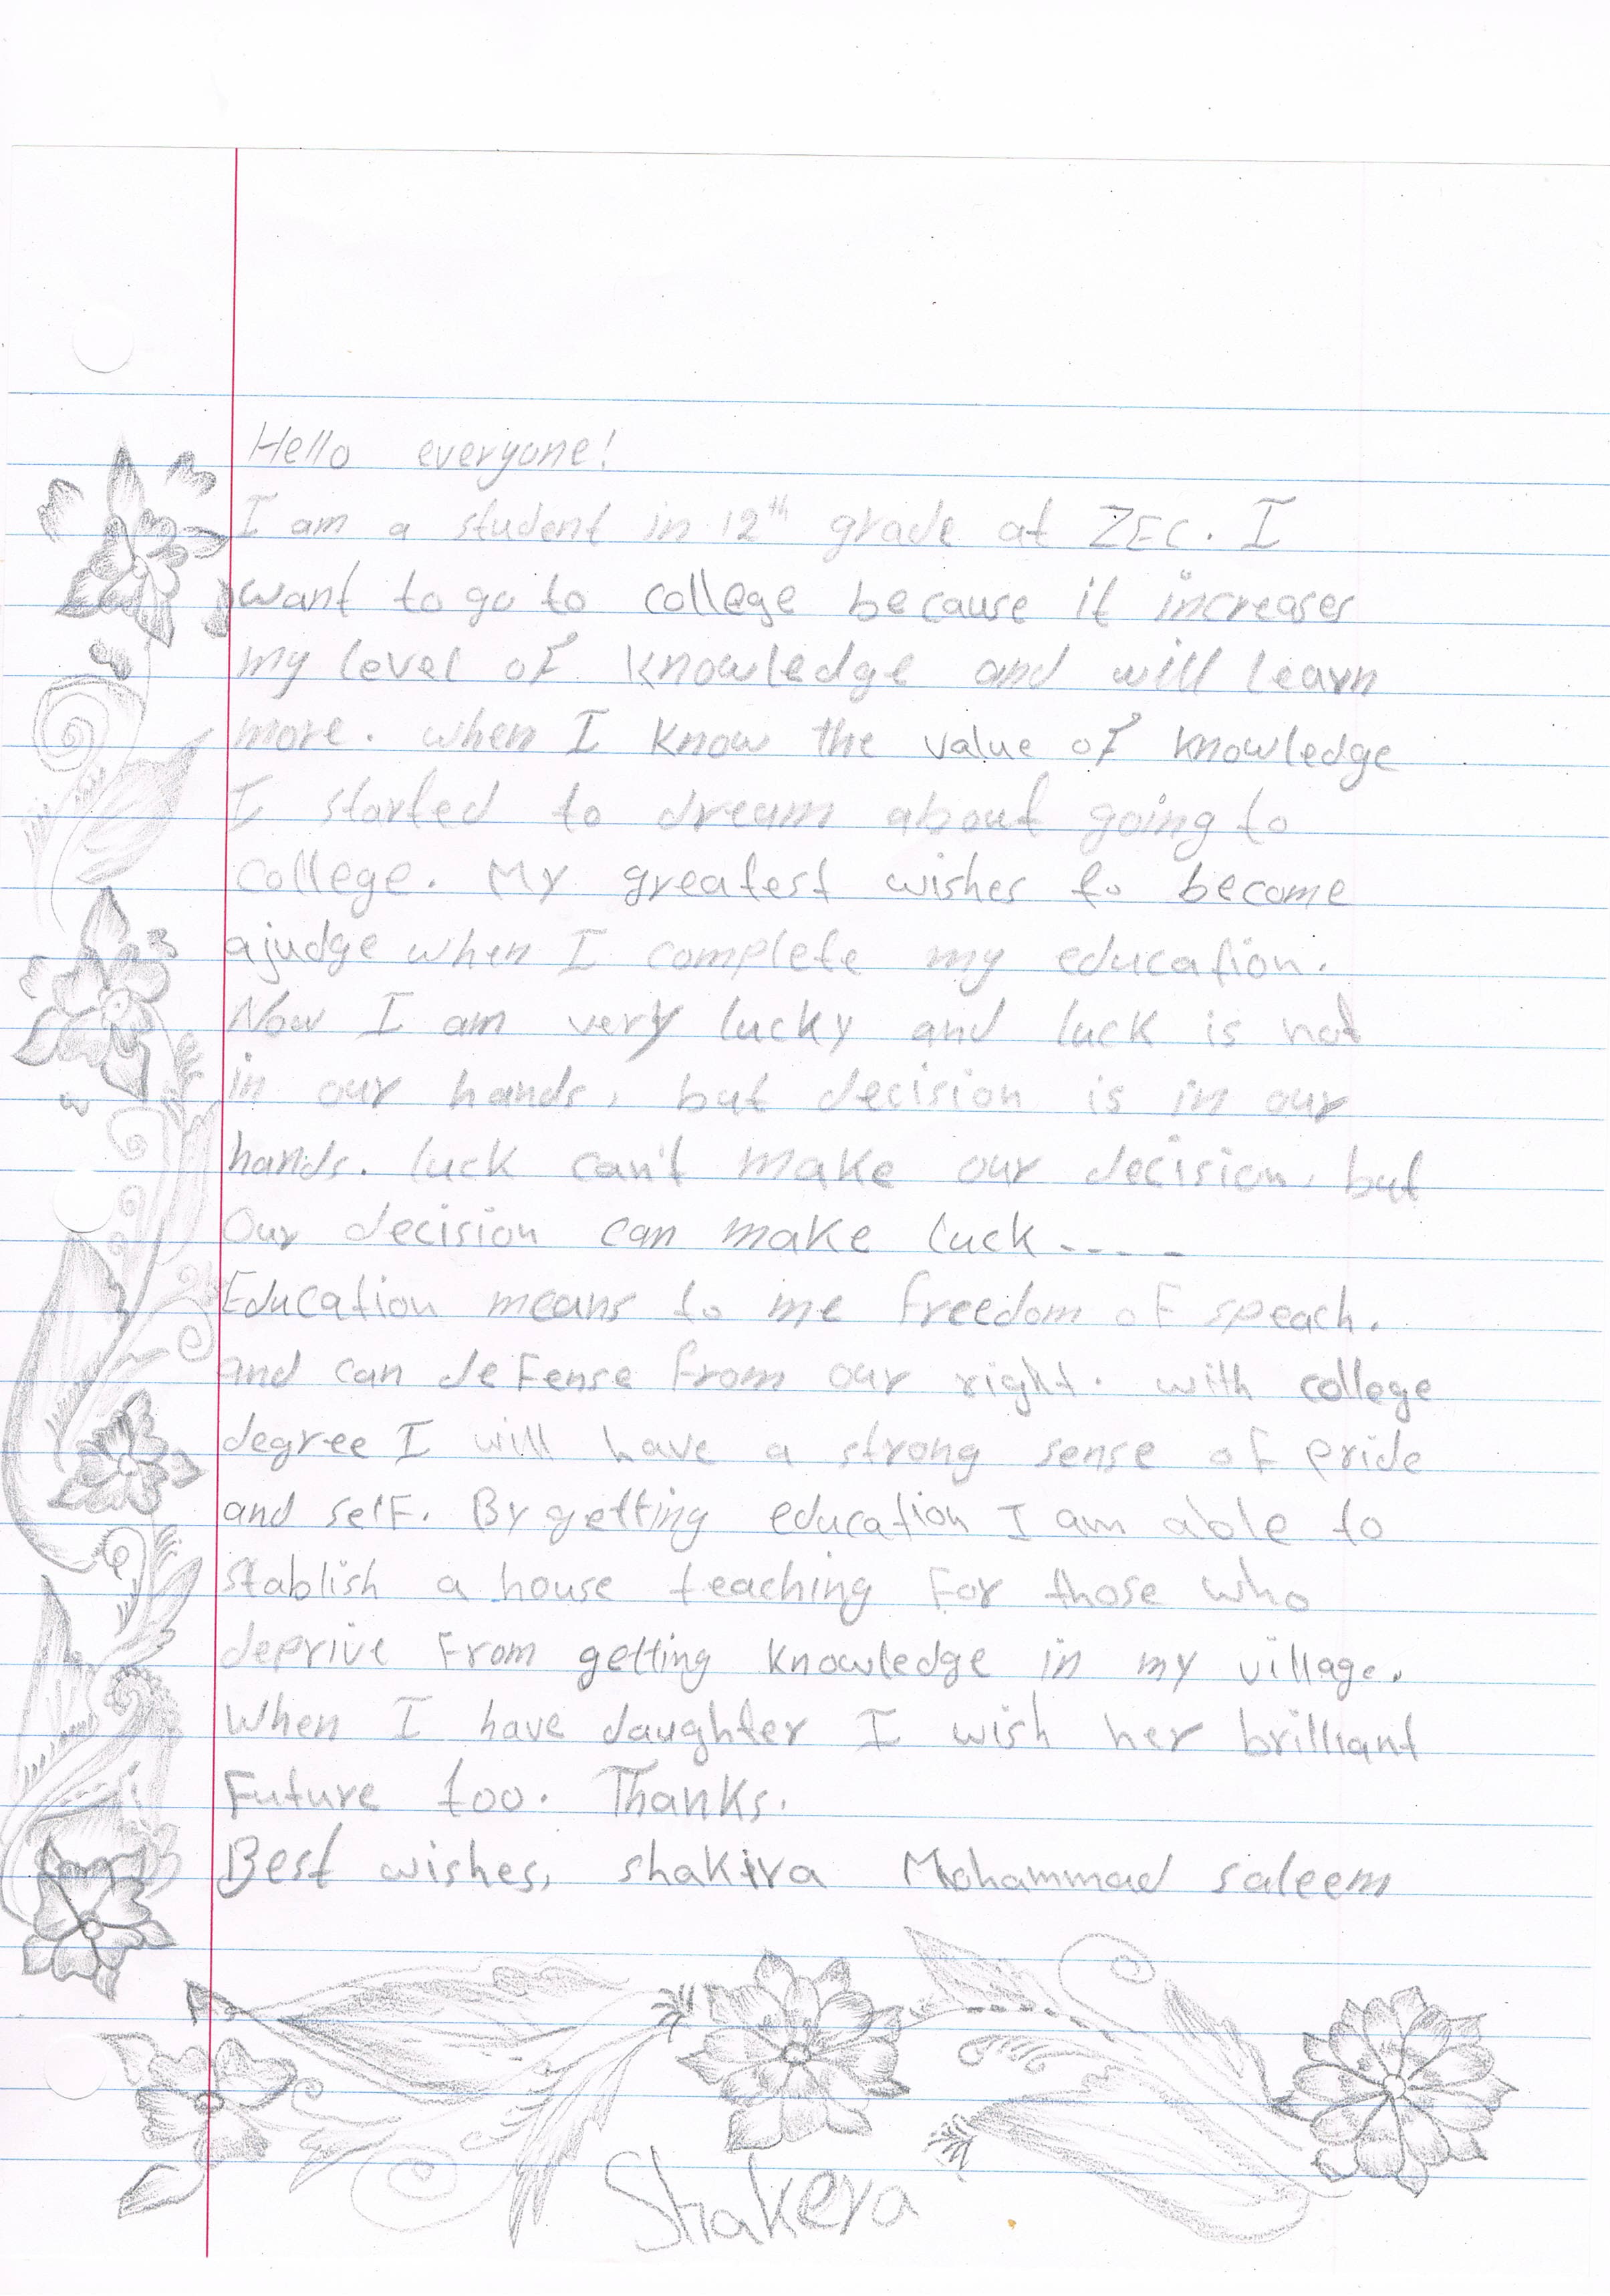 Hello everyone!
I am a student in 12th grade at ZEC. I
want to go to college because it increases
my level of knowledge and will learn
more. when I know the value of knowledge
I started to dream about going to
college. My greatest wishes to become
a judge when I complete my education.
Now I am very lucky and luck is not
in our hands, but decision is in our
hands. luck can't make our decision, but
Our decision can make luck-----
Education means to me freedom of speach.
and can defense from our right. with college
degree I will have a strong sense of pride
and self. By getting education I am able to
stablish a house teaching for those who
deprive from getting knowledge in my village.
When I have daughter I wish her brilliant
Future too. Thanks.
Best wishes, shakira Mohammad saleem
Shakera